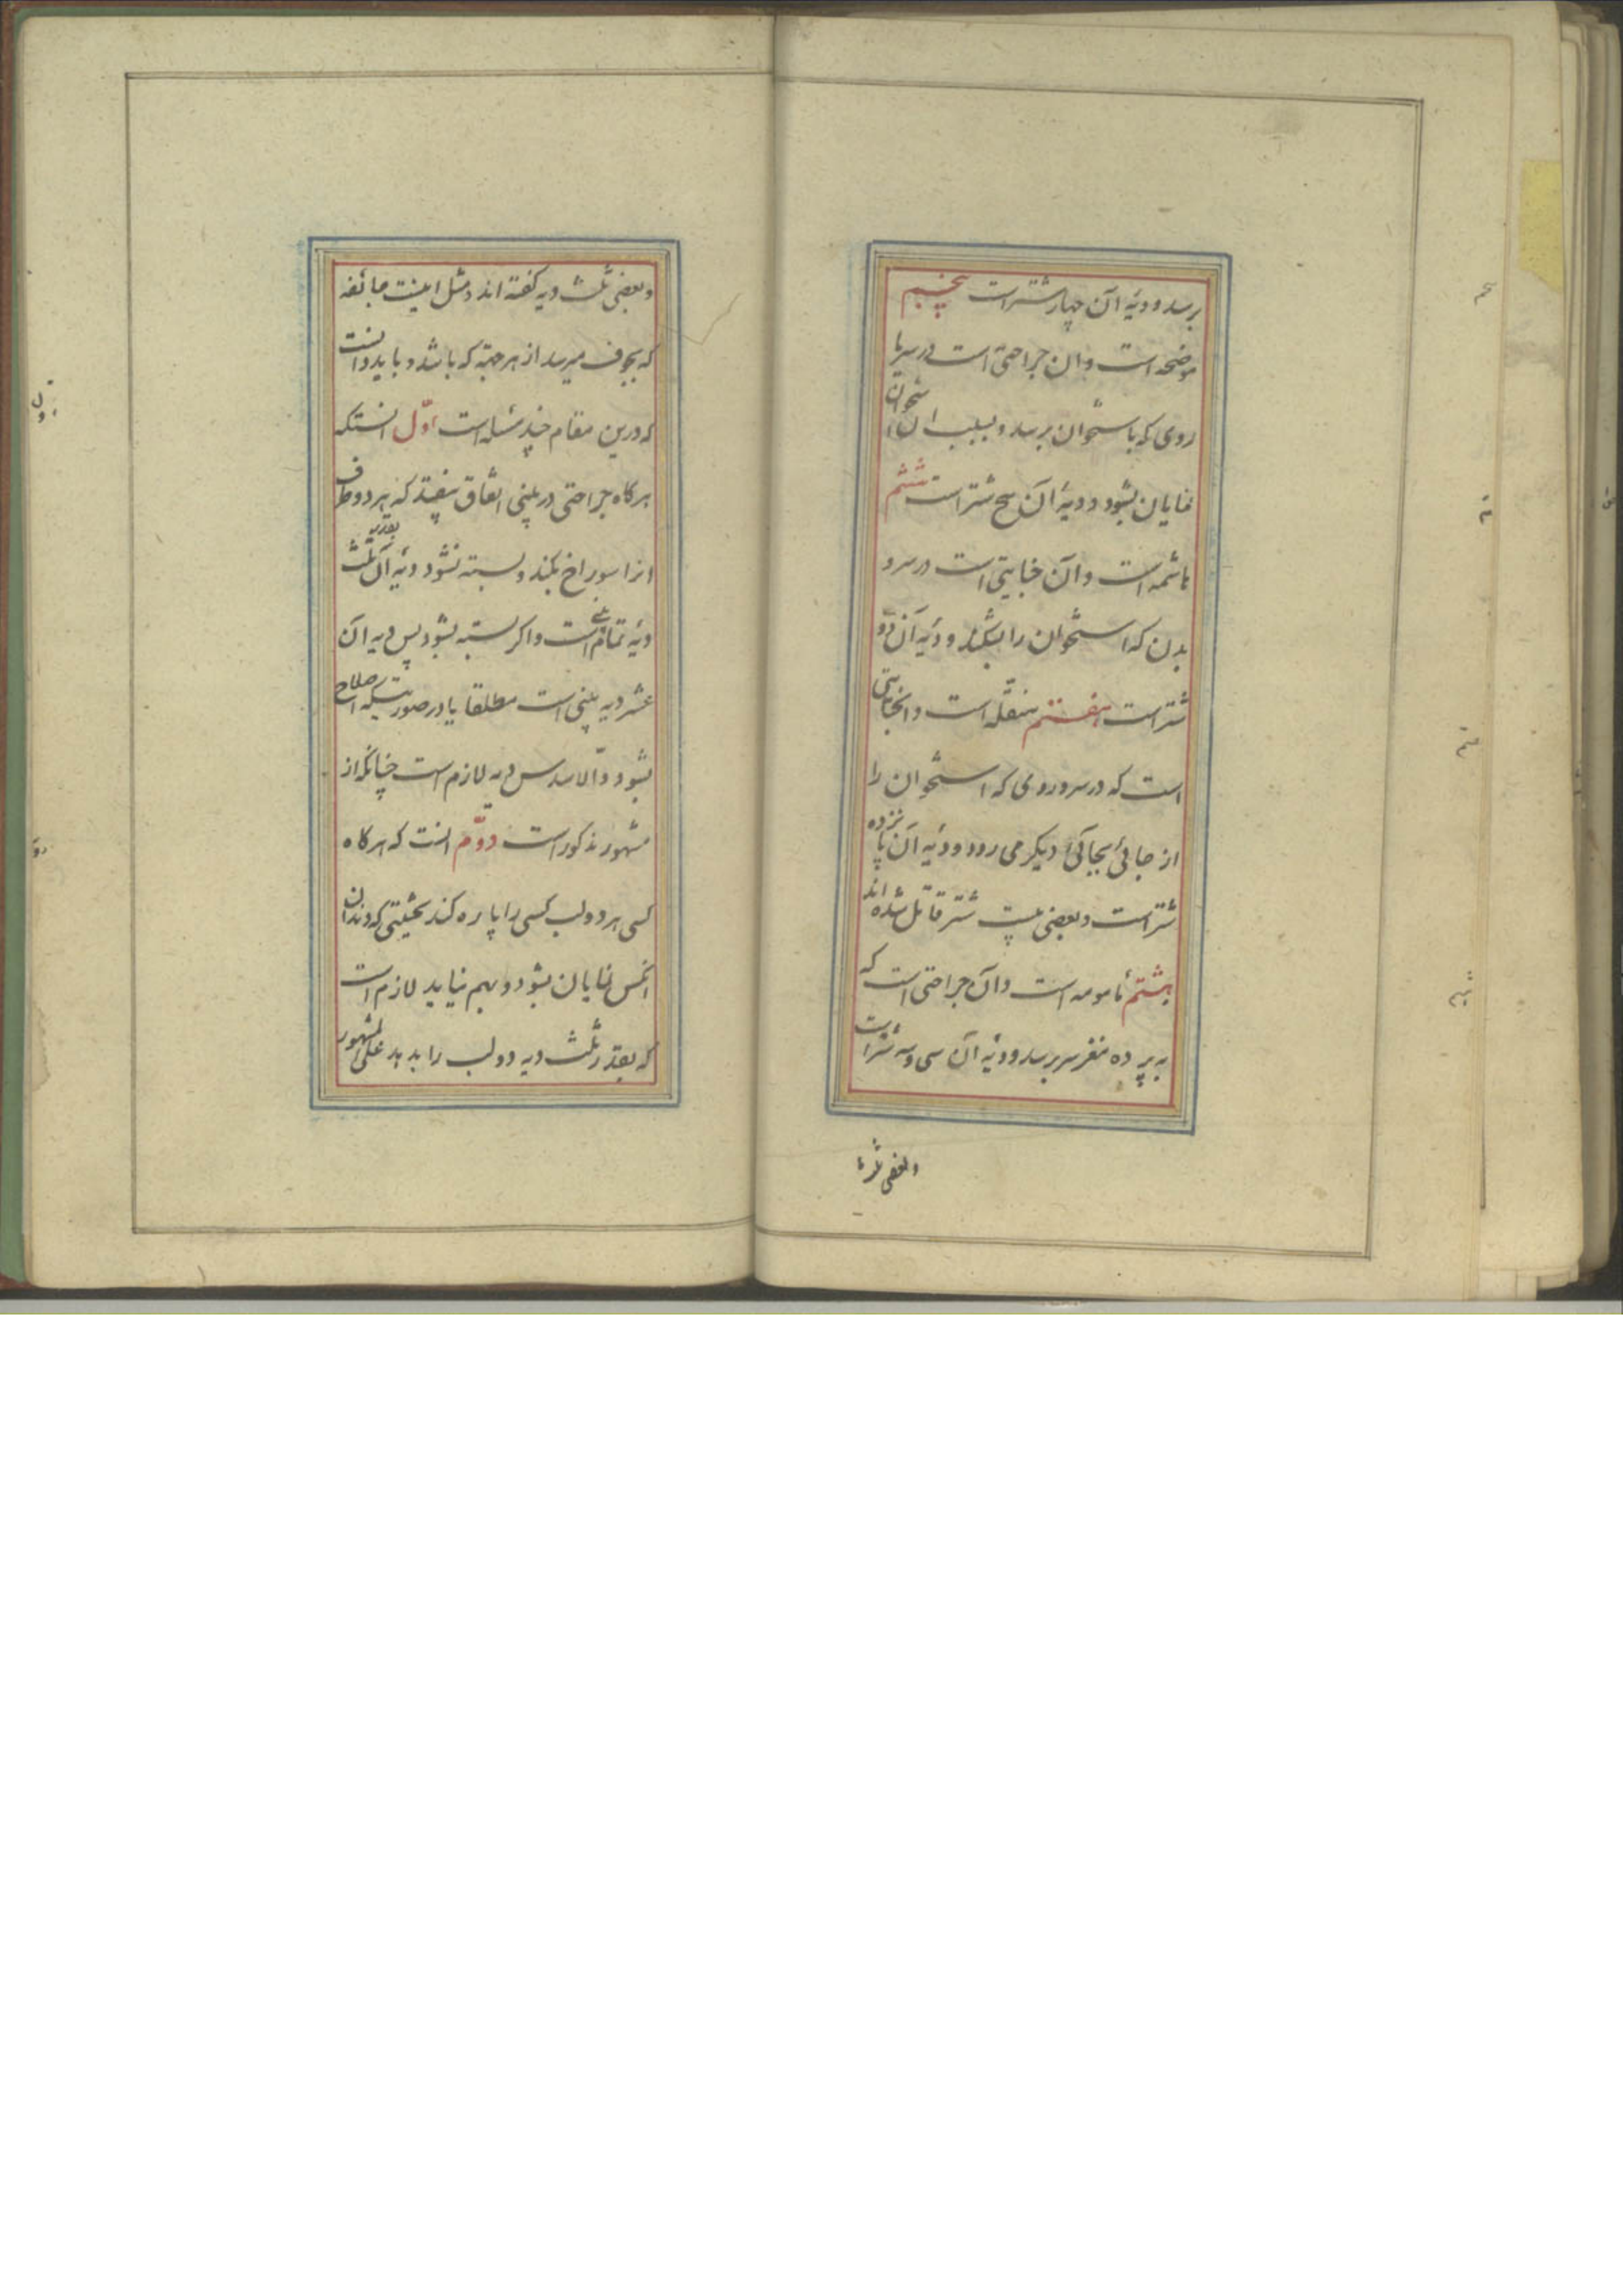 برسد و دیهٔ آن چهار شتر است پنجم
موضحه است و ان جراحتی است در سر یا
روی که باستخوان برسد و بسبب ان استخوان
نمایان بشود و دیهٔ آن پنج شتر است ششم
هاشمه است و آن جنایتی است در سر و
بدن که استخوان را بشکند و دیهٔ آن ده
شتر است هفتم منقّله است و ان جنایتی
است که در سر و روی که استخوان را
از جائی بجائی دیکر می رود و دیهٔ آن پانزده
شتر است و بعضی بیست شتر قائل شده اند
هشتم مأمومه است و آن جراحتی است که
به پرده مغز سر برسد و دیهٔ آن سی و سه شتر است
و بعضی ثلث
و بعضی ثلث دیه کفته اند و مثل اینست جائفه
که بجوف میرسد از هر جهته که باشد و باید دانست
که درین مقام چند مسئله است اوّل انستکه
هرکاه جراحتی در بینی اتفاق بیفتد که هر دو طرف
انرا سوراخ بکند و بسته نشود دیهٔ آن بقدر ثلث
دیهٔ تمام بینی است و اکر بسته بشود پس دیه آن
عشر دیه بینی است مطلقا یا در صورتیکه اصلاح
بشود و الّا سدس دیه لازم است چنانکه از
مشهور مذکور است دوّم انست که هرکاه
کسی هر دو لب کسی را پاره کند بحیثیتی که دندان
انکس نمایان بشود و بهم نیاید لازم است
که بقدر ثلث دیه دو لب را بدهد علی المشهور
پنجم
هفتم
هشتم
اول